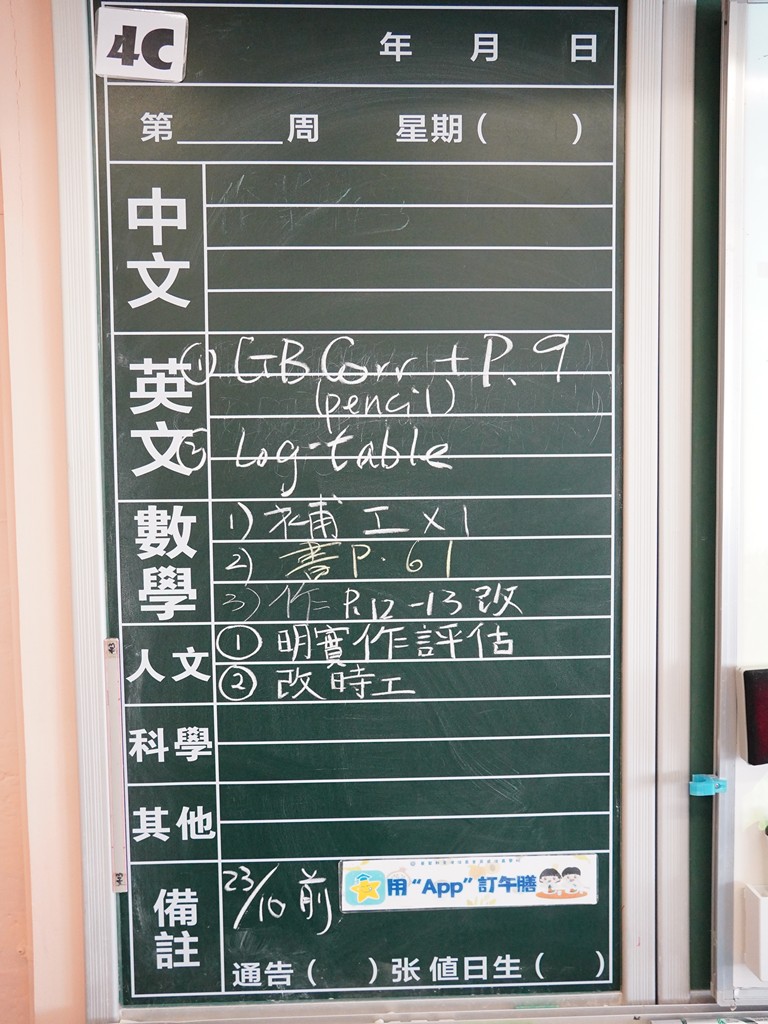 4C
年 月 日
第______周 星期( )
中文
英文
① GB Corr + P. 9
(pencil)
Log-table
數學
1) 補工 x 1
2) 書 P. 61
3) 作 P.12-13 改
人文
① 明實作評估
② 改時工
科學
其他
備註
23/10 前
用“App”訂午膳
通告( )张 值日生( )